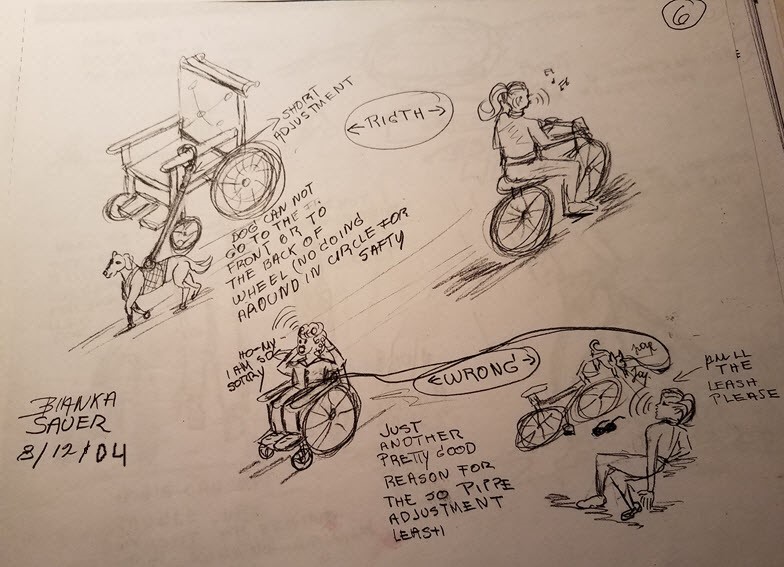 6
SHORT
ADJUSTMENT
← RIGTH →
DOG CAN NOT
GO TO THE
FRONT OR TO
THE BACK OF
WHEEL (NO GOING
AROUND IN CIRCLE FOR
SAFTY
HO-MY
I AM SO
SORRY
← WRONG →
PULL
THE
LEASH
PLEASE
BIANKA
SAUER
8/12/04
JUST
ANOTHER
PRETTY GOOD
REASON FOR
THE JO PIPPE
ADJUSTMENT
LEASH